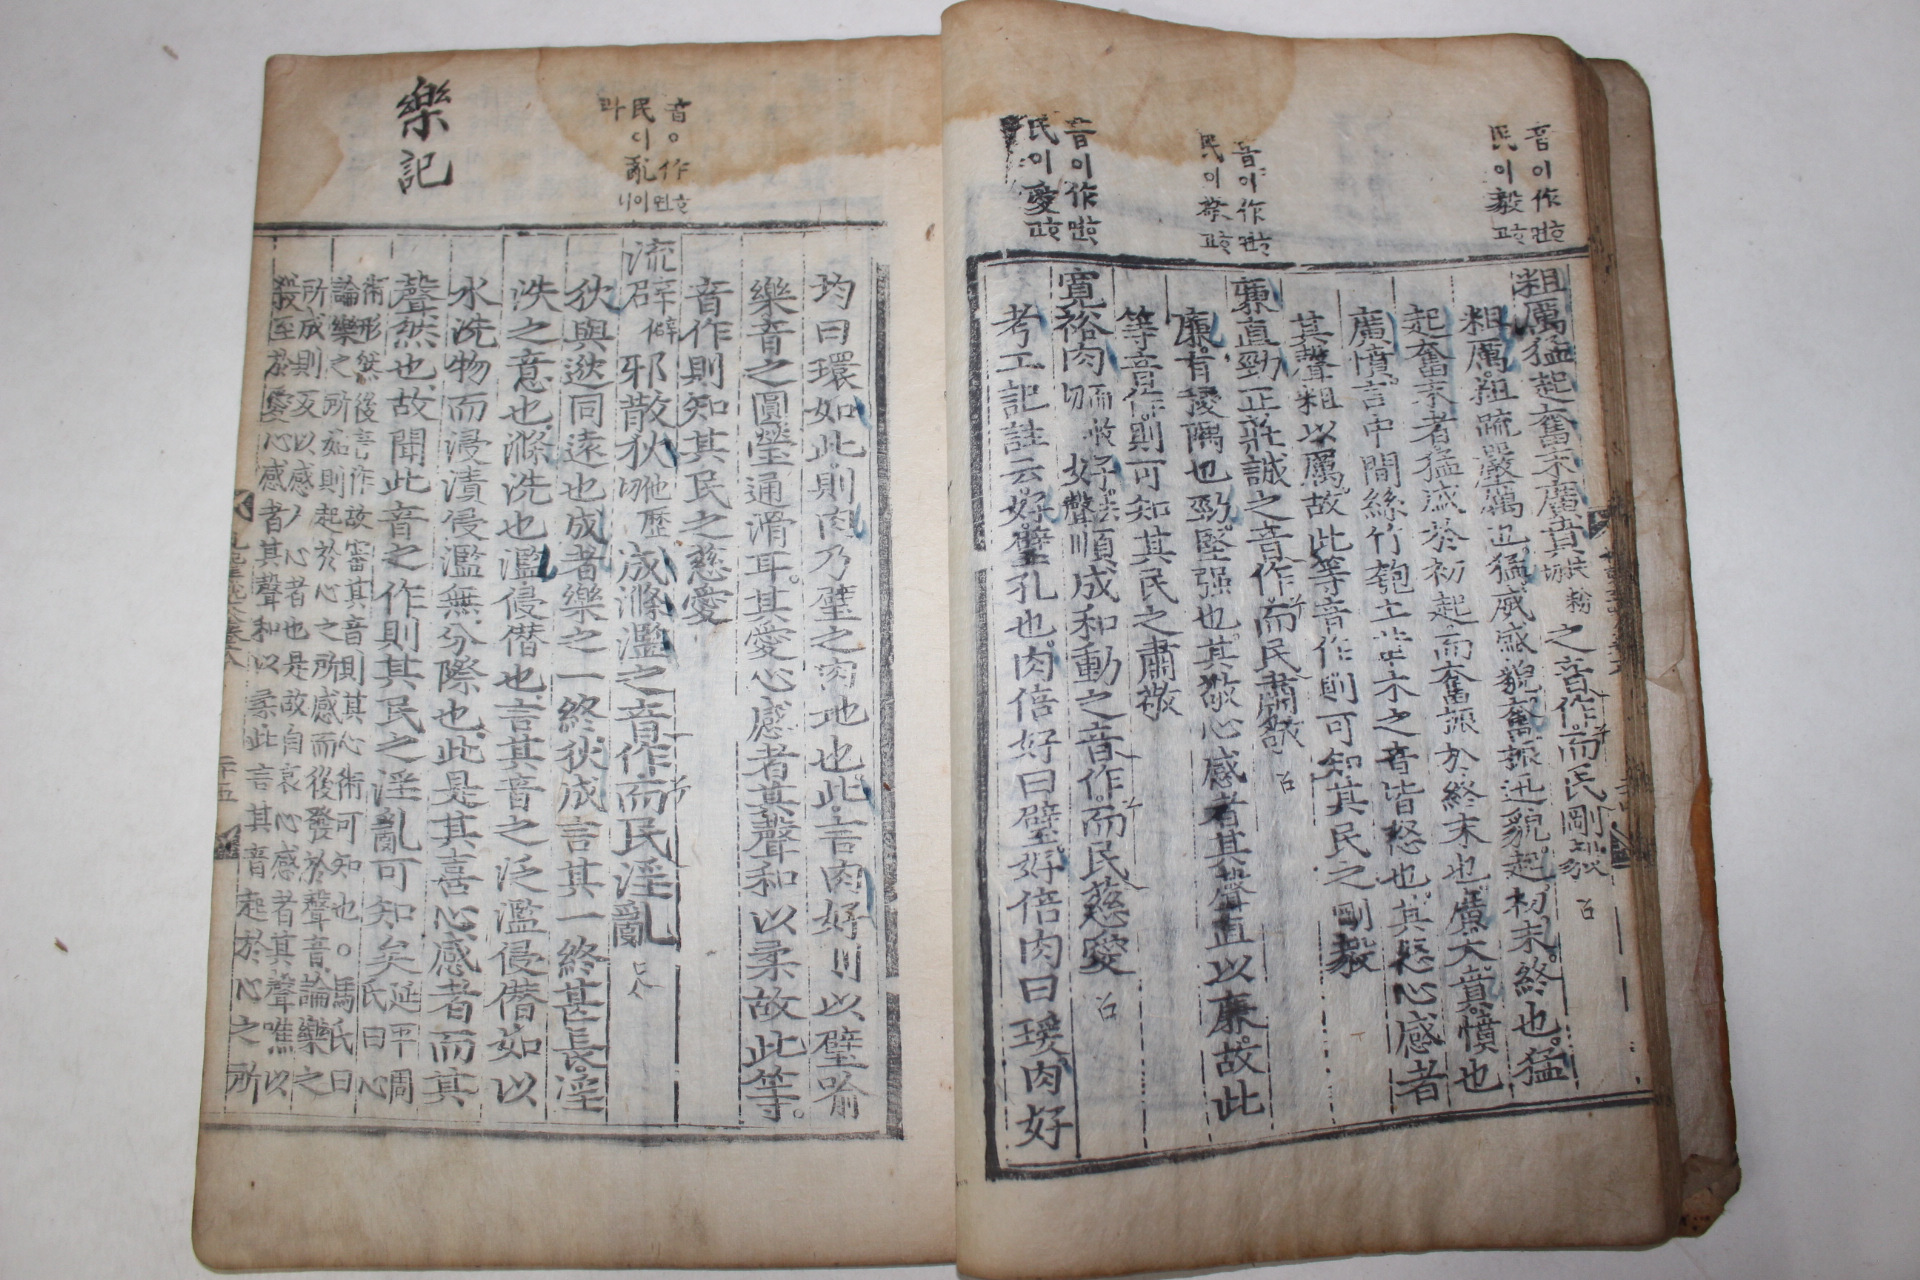 音이作
民이毅
音이作
民이敬
音이作
民이愛
粗厲猛起奮末廣賁扶粉切之音作而民剛毅
粗厲粗疏嚴厲也猛威盛貌奮振迅貌起初末終也猛
起奮末者猛盛於初起而奮振於終末也廣大賁憤也
廣憤言中間絲竹匏土革木之音皆怒也其怒心感者
其聲粗以厲故此等音作則可知其民之剛毅
廉直勁正莊誠之音作而民肅敬
廉有稜隅也勁堅强也其敬心感者其聲直以廉故此
等音作則可知其民之肅敬
寬裕肉而救切好去聲順成和動之音作而民慈愛
考工記註云好璧孔也肉倍好曰璧好倍肉曰瑗肉好
音 作
民이亂
라
樂記
均曰環如此則肉乃璧之肉地也此言肉好則以璧喻
樂音之圓瑩通滑耳其愛心感者其聲和以柔故此等
音作則知其民之慈愛
流辟僻邪散狄他歷切成滌濫之音作而民淫亂
狄與逖同遠也成者樂之一終狄成言其一終甚長淫
泆之意也滌洗也濫侵僭也言其音之泛濫侵僭如以
水洗物而浸漬侵濫無分際也此是其喜心感者而其
聲然也故聞此音之作則其民之淫亂可知矣延平周
氏曰心
術形然後音作故審其音則其心術可知也馬氏曰
論樂之所起則起於心之所感而後發於聲音論樂之
所成則反以感人心者也是故自哀心感者其聲噍以
殺至於愛心感者其聲和以柔此言其音起於心之所
二十五